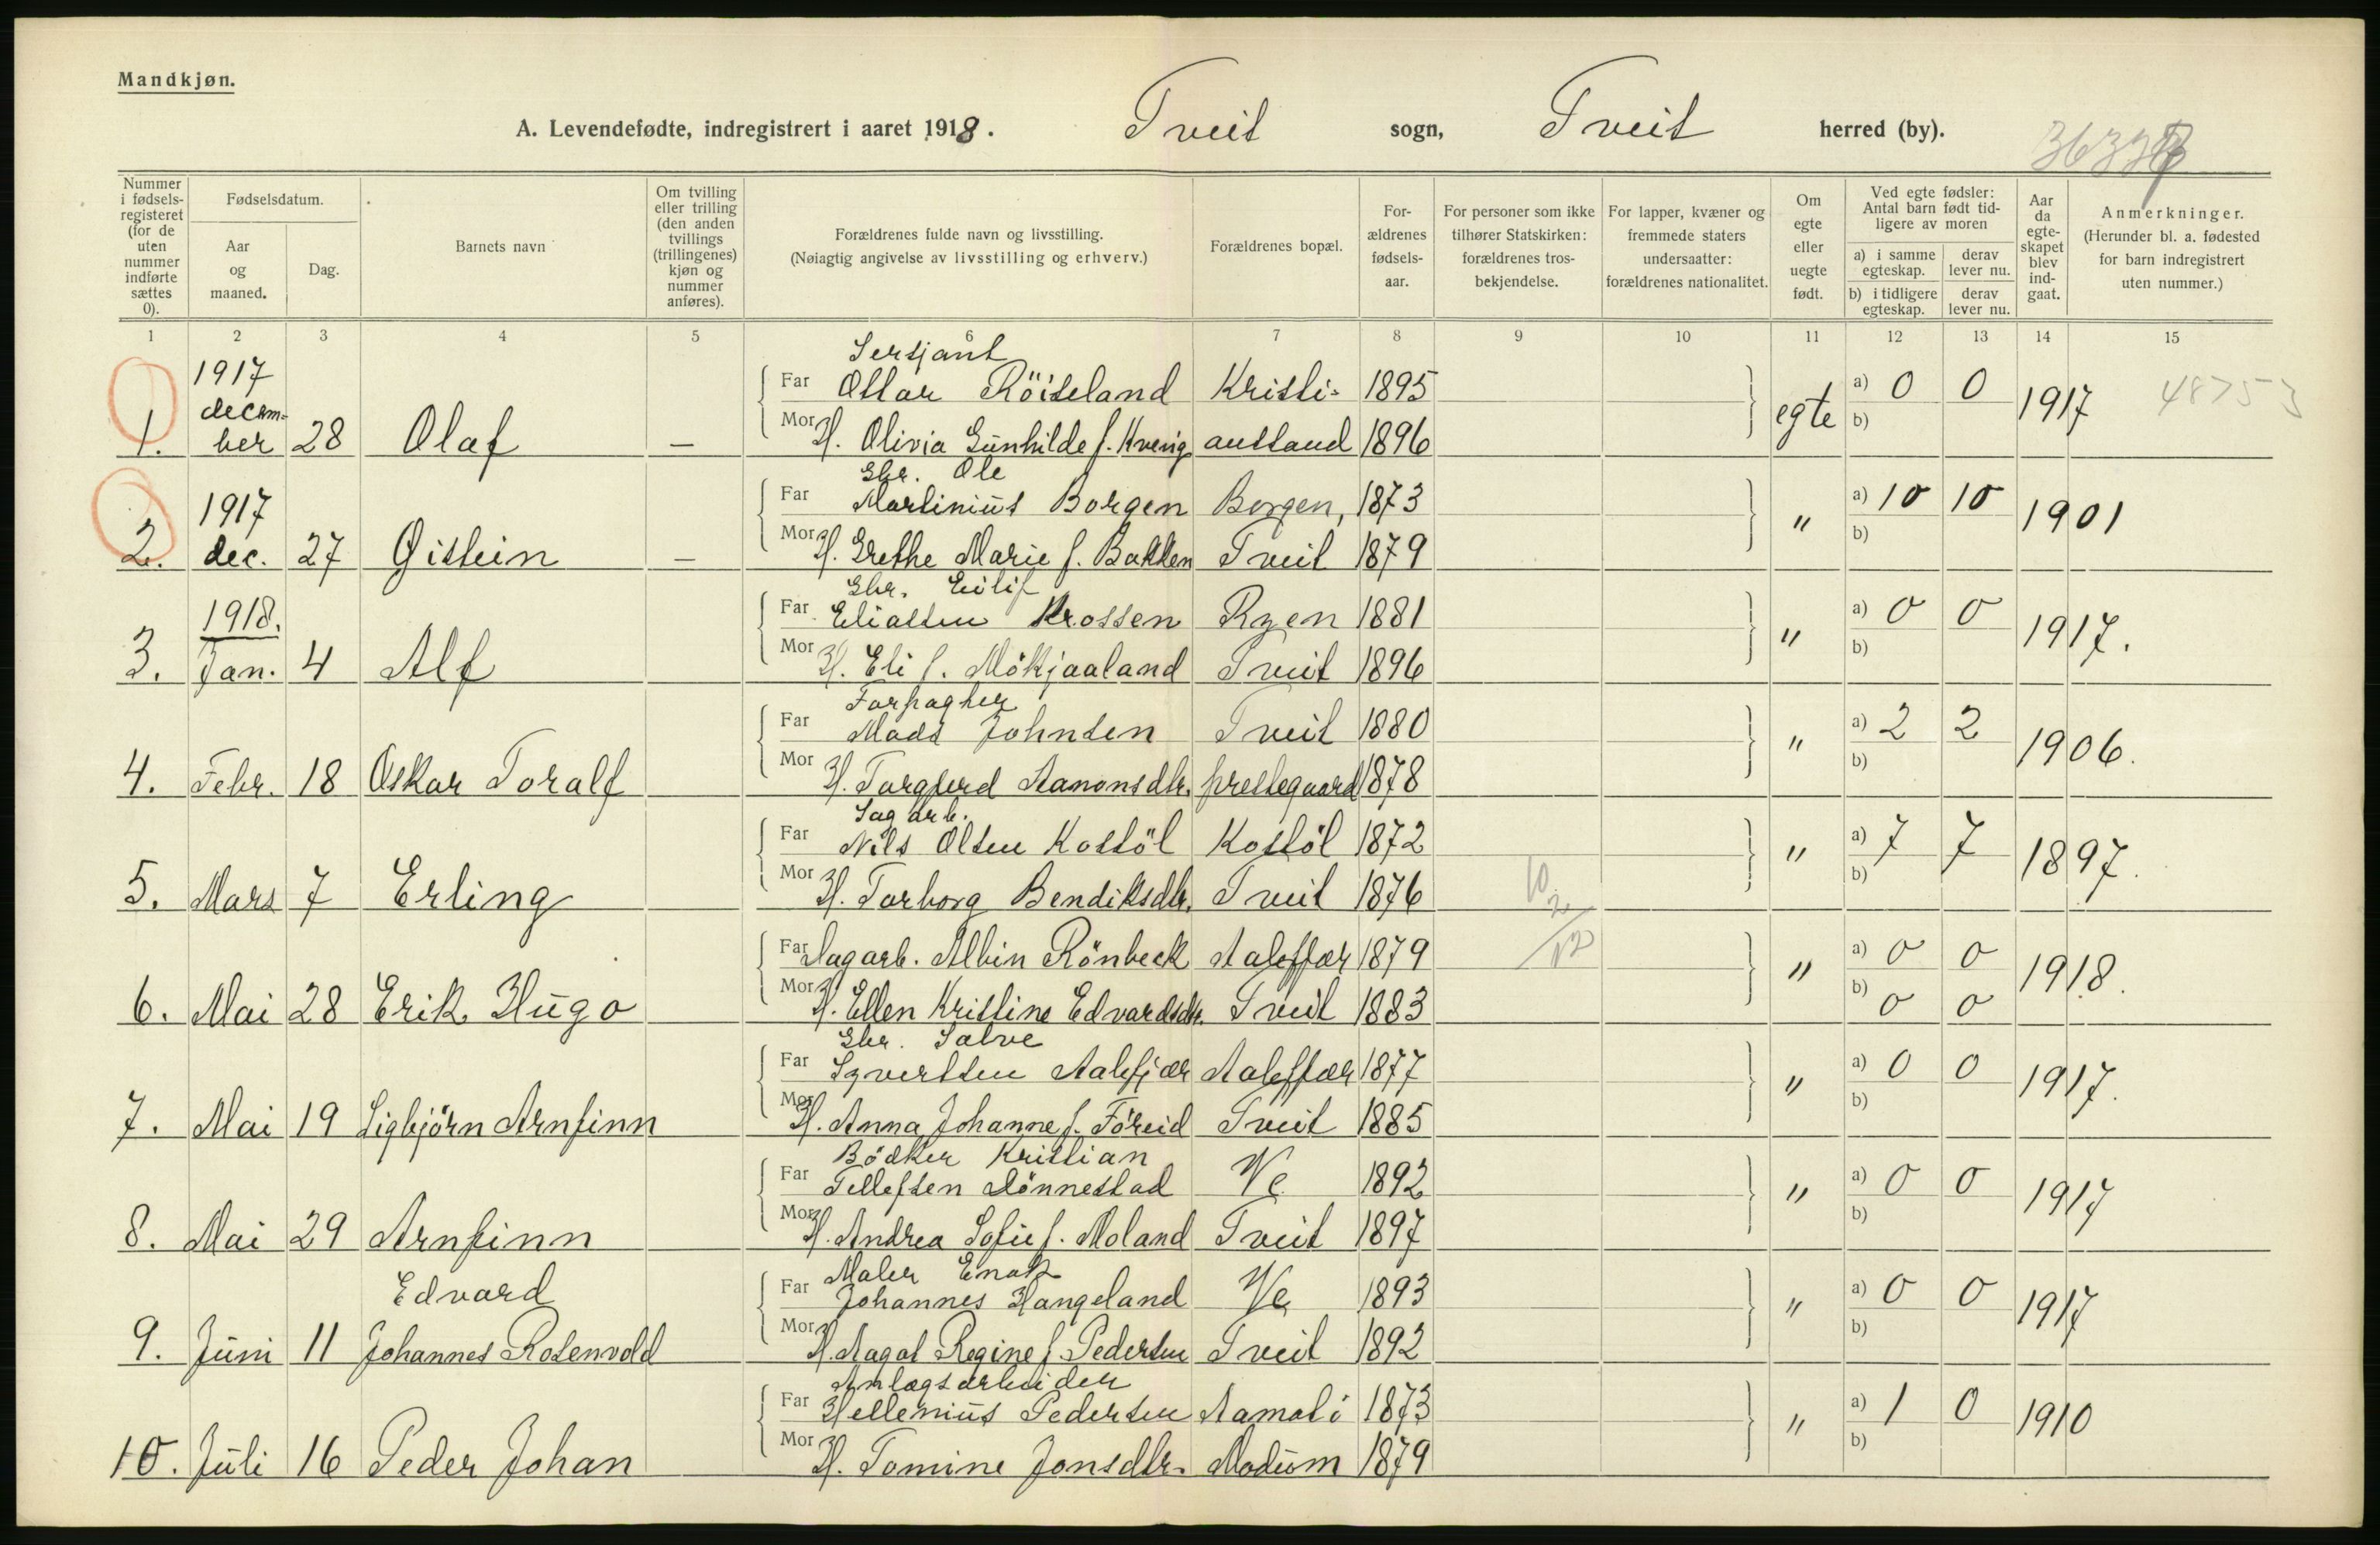 Mandkjøn.
A. Levendefødte, indregistrert i aaret 1918. Tveit sogn, Tveit herred (by).
Nummer i fødsels-registeret (for de uten nummer indførte sættes 0).
Fødselsdatum.
Aar og maaned.
Dag.
Barnets navn
Om tvilling eller trilling (den anden tvillings (trillingenes) kjøn og nummer anføres).
Forældrenes fulde navn og livsstilling.
(Nøiagtig angivelse av livsstilling og erhverv.)
Forældrenes bopæl.
For-ældrenes fødsels-aar.
For personer som ikke tilhører Statskirken: forældrenes tros-bekjendelse.
For lapper, kvæner og fremmede staters undersaatter: forældrenes nationalitet.
Om egte eller uegte født.
Ved egte fødsler: Antal barn født tid-ligere av moren
a) i samme egteskap.
derav lever nu.
b) i tidligere egteskap.
derav lever nu.
Aar da egte-skapet blev ind-gaat.
Anmerkninger.
(Herunder bl. a. fødested for barn indregistrert uten nummer.)
1 2 3 4 5 6 7 8 9 10 11 12 13 14 15
1917 Sersjant
decem- Far Ottar Röiseland Kristi- 1895 a) 0 0
1. ber 28 Olaf — Mor H. Olivia Gunhilde f. Kvenig ansand 1896 egte b) 1917 48753
1917 Gbr. Ole
Far Martinius Borgen Borgen, 1873 a) 10 10
2. dec. 27 Øistein — Mor H. Grethe Marie f. Bakken Tveit 1879 " b) 1901
1918. Gbr. Eilif
Far Eliassen Krossen Ryen 1881 a) 0 0
3. Jan. 4 Alf Mor H. Eli f. Mökjaaland Tveit 1896 " b) 1917.
Forpagter
Far Mads Johnsen Tveit 1880 a) 2 2
4. Febr. 18 Oskar Toralf Mor H. Torgjerd Aanonsdtr. prestegaard 1878 " b) 1906.
Sagarb.
Far Nils Olsen Kostöl Kostöl 1872 a) 7 7
5. Mars 7 Erling Mor H. Torborg Bendiksdtr. Tveit 1876 " b) 1897.
Far Sagarb. Albin Rönbeck Aalefjær 1879 a) 0 0
6. Mai 28 Erik Hugo Mor H. Ellen Kristine Edvardsdtr. Tveit 1883 " b) 0 0 1918.
Gbr. Salve
Far Syvertsen Aalefjær Aalefjær 1877 a) 0 0
7. Mai 19 Sigbjörn Arnfinn Mor H. Anna Johanne f. Föreid Tveit 1885 " b) 1917.
Bödker Kristian
Far Tellefsen Dönnestad Ve 1892 a) 0 0
8. Mai 29 Arnfinn Mor H. Andrea Sofie f. Moland Tveit 1897 " b) 1917
Edvard Maler Enok
Far Johannes Hangeland Ve 1893 a) 0 0
9. Juni 11 Johannes Rosenvold Mor H. Aagot Regine f. Pedersen Tveit 1892 " b) 1917
Anlægsarbeider
Far Hellenius Pedersen Aamoti 1873 a) 1 0
10. Juli 16 Peder Johan Mor H. Tomine Jonsdtr. Modum 1879 " b) 1910